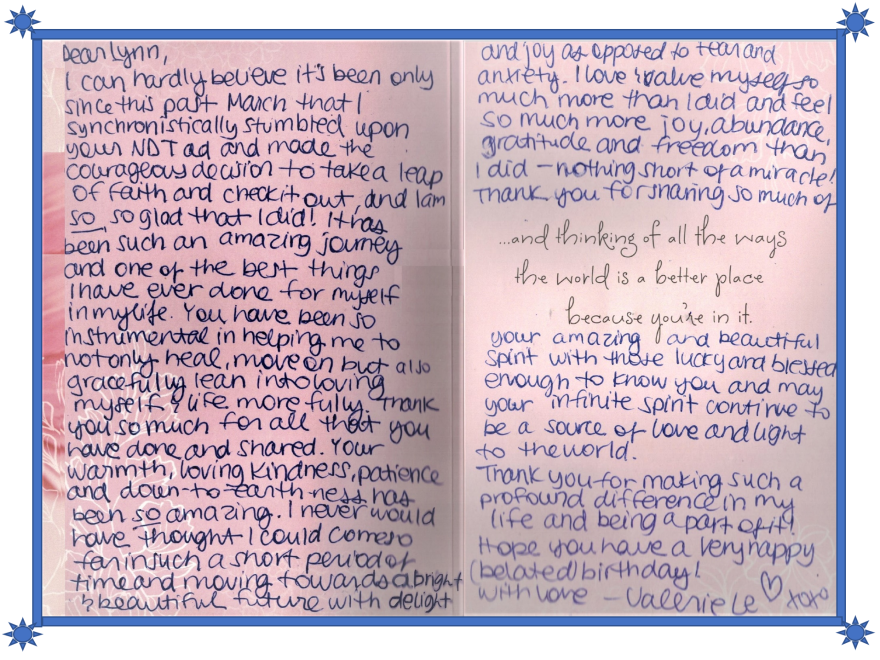 Dear Lynn,
I can hardly believe it's been only
since this past March that I
synchronistically stumbled upon
your NDT ad and made the
courageous decision to take a leap
of faith and check it out, and I am
so, so glad that I did! It has
been such an amazing journey
and one of the best things
I have ever done for myself
in my life. You have been so
instrumental in helping me to
not only heal, move on but also
gracefully lean into loving
myself & life more fully. Thank
you so much for all that you
have done and shared. Your
warmth, loving kindness, patience
and down-to-earth ness has
been so amazing. I never would
have thought I could come so
far in such a short period of
time and moving towards a bright
& beautiful future with delight
and joy as opposed to fear and
anxiety. I love & value myself so
much more than I did and feel
so much more joy, abundance,
gratitude and freedom than
I did – nothing short of a miracle!
Thank you for sharing so much of
...and thinking of all the ways
the world is a better place
because you're in it.
your amazing and beautiful
spirit with those lucky and blessed
enough to know you and may
your infinite spirit continue to
be a source of love and light
to the world.
Thank you for making such a
profound difference in my
life and being a part of it!
Hope you have a very happy
(belated) birthday!
with love – Valerie Le ♡ xoxo